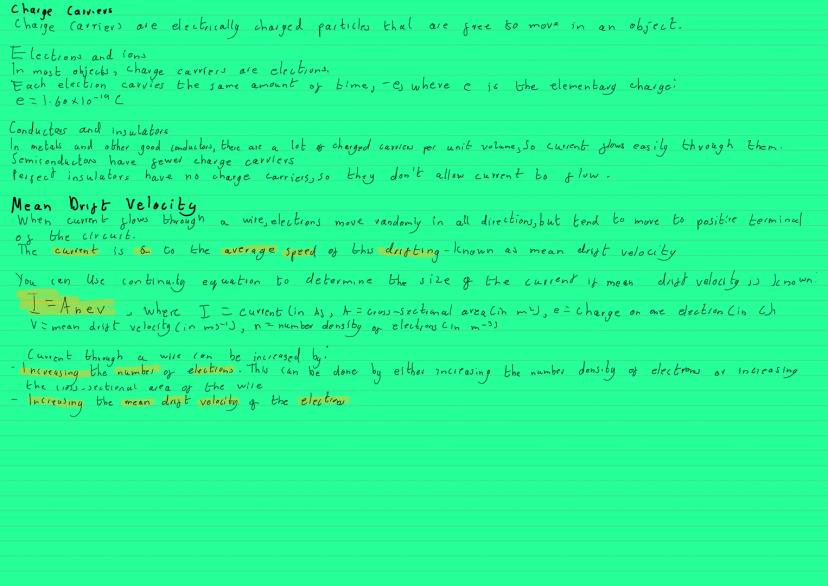 Charge Carriers
Charge Carriers are electrically charged particles that are free to move in an object.
Electrons and ions
In most objects, charge carriers are electrons.
Each electron carries the same amount of time, -e, where e is the elementary charge:
e = 1.60×10⁻¹⁹ C
Conductors and insulators
In metals and other good conductors, there are a lot of charged carriers per unit volume, so current flows easily through them.
Semiconductors have fewer charge carriers
Perfect insulators have no charge carriers, so they don't allow current to flow.
Mean Drift Velocity
When current flows through a wire, electrons move randomly in all directions, but tend to move to positive terminal
of the circuit.
The current is ∝ to the average speed of this drifting - known as mean drift velocity
You can use continuity equation to determine the size of the current if mean drift velocity is known:
I = Anev, where I = current (in A), A = cross-sectional area (in m²), e = charge on one electron (in C)
V = mean drift velocity (in ms⁻¹), n = number density of electrons (in m⁻³)
Current through a wire can be increased by:
- Increasing the number of electrons. This can be done by either increasing the number density of electrons or increasing
the cross-sectional area of the wire
- Increasing the mean drift velocity of the electrons